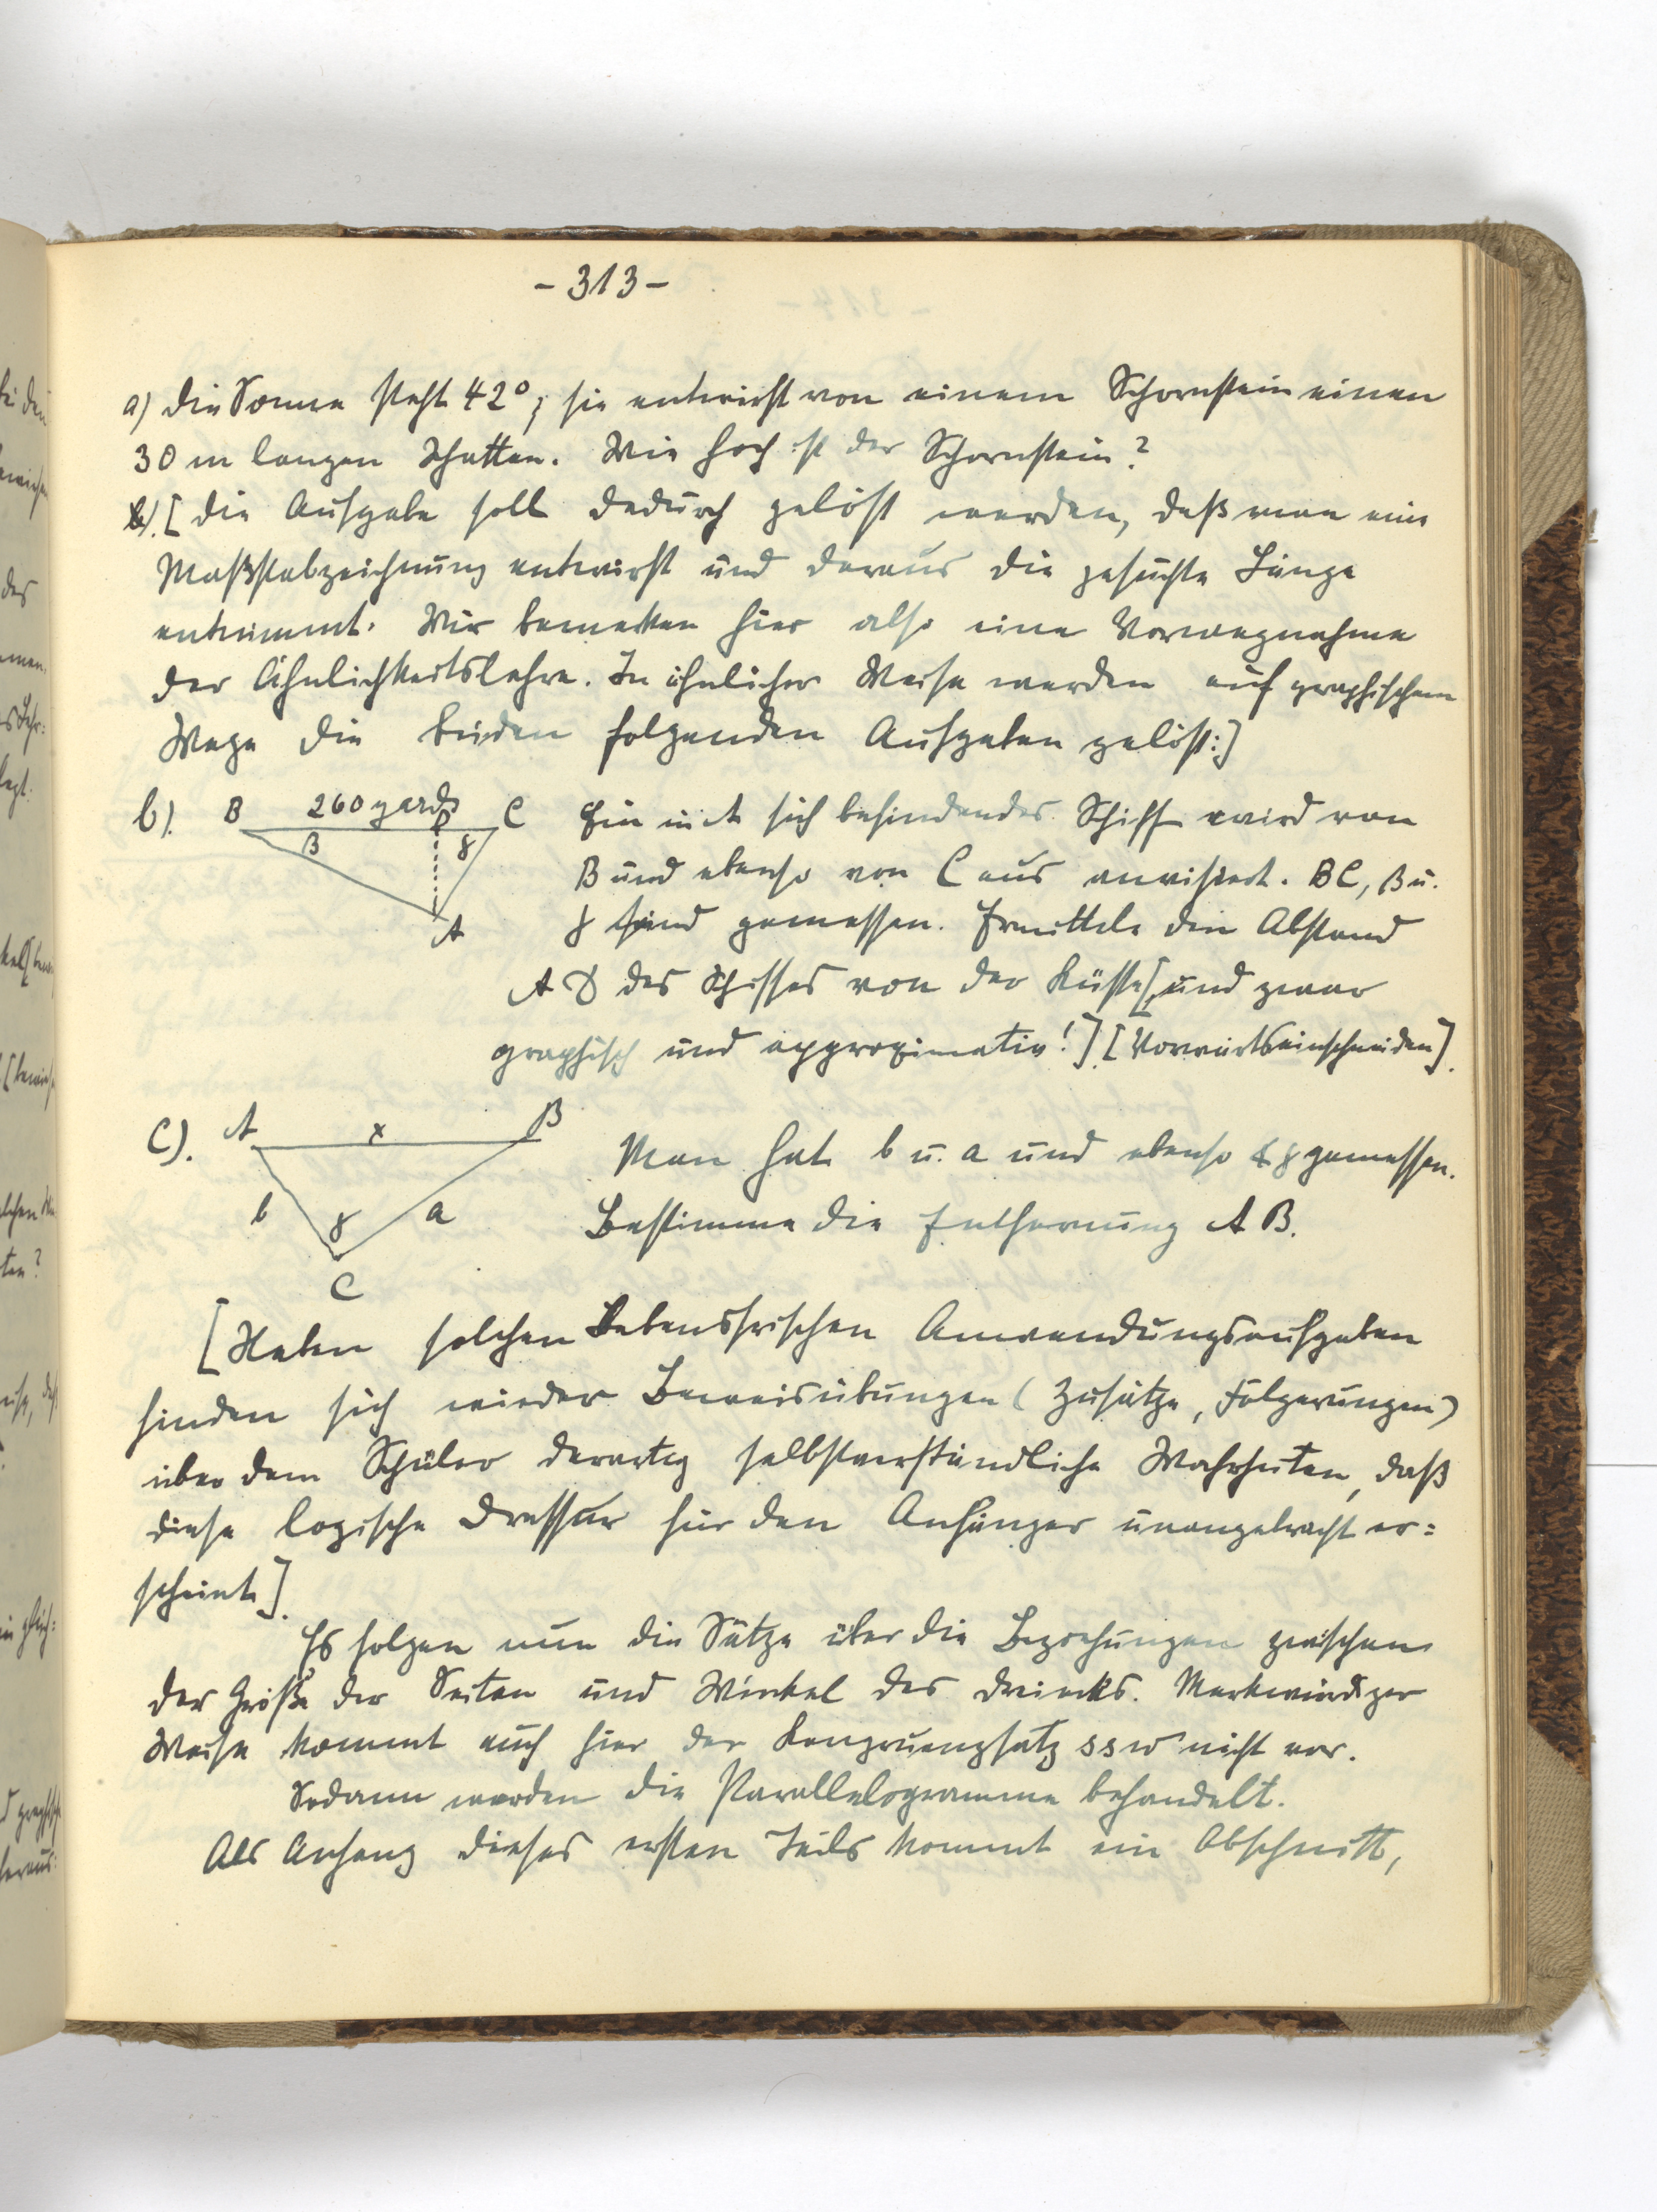 - 313 -
a) Die Sonne steht 42°; sie entwirft von einem Schornstein einen
30 m langen Schatten. Wie hoch ist der Schornstein?
[Die Aufgabe soll dadurch gelöst werden, daß man eine
Maßstabzeichnung entwirft und daraus die gesuchte Länge
entnimmt. Wir bemerken hier also eine Vorwegnahme
der Ähnlichkeitslehre. In ähnlicher Weise werden auf graphischem
Wege die beiden folgenden Aufgaben gelöst:]
b). B 260 yards C Ein in A sich befindendes Schiff wird von
β γ B und ebenso von C aus anvisiert. BC, β u.
A γ sind gemessen. Ermittele den Abstand
A D des Schiffes von der Küste[, und zwar
graphisch und approximativ!]. [Vorwärtseinschneiden].
C). A x B
Man hat b u. a und ebenso ∢ γ gemessen.
b γ a Bestimme die Entfernung A B.
C
[Neben solchen lebensfrischen Anwendungsaufgaben
finden sich wieder Beweisübungen (Zusätze, Folgerungen)
über dem Schüler derartig selbstverständliche Wahrheiten, daß
diese logische Dressur für den Anfänger unangebracht er=
scheint].
Es folgen nun die Sätze über die Beziehungen zwischen
der Größe der Seiten und Winkel des Dreiecks. Merkwürdiger
Weise kommt auch hier der Kongruenzsatz ssw nicht vor.
Sodann werden die Parallelogramme behandelt.
Als Anhang dieses ersten Teils kommt ein Abschnitt,